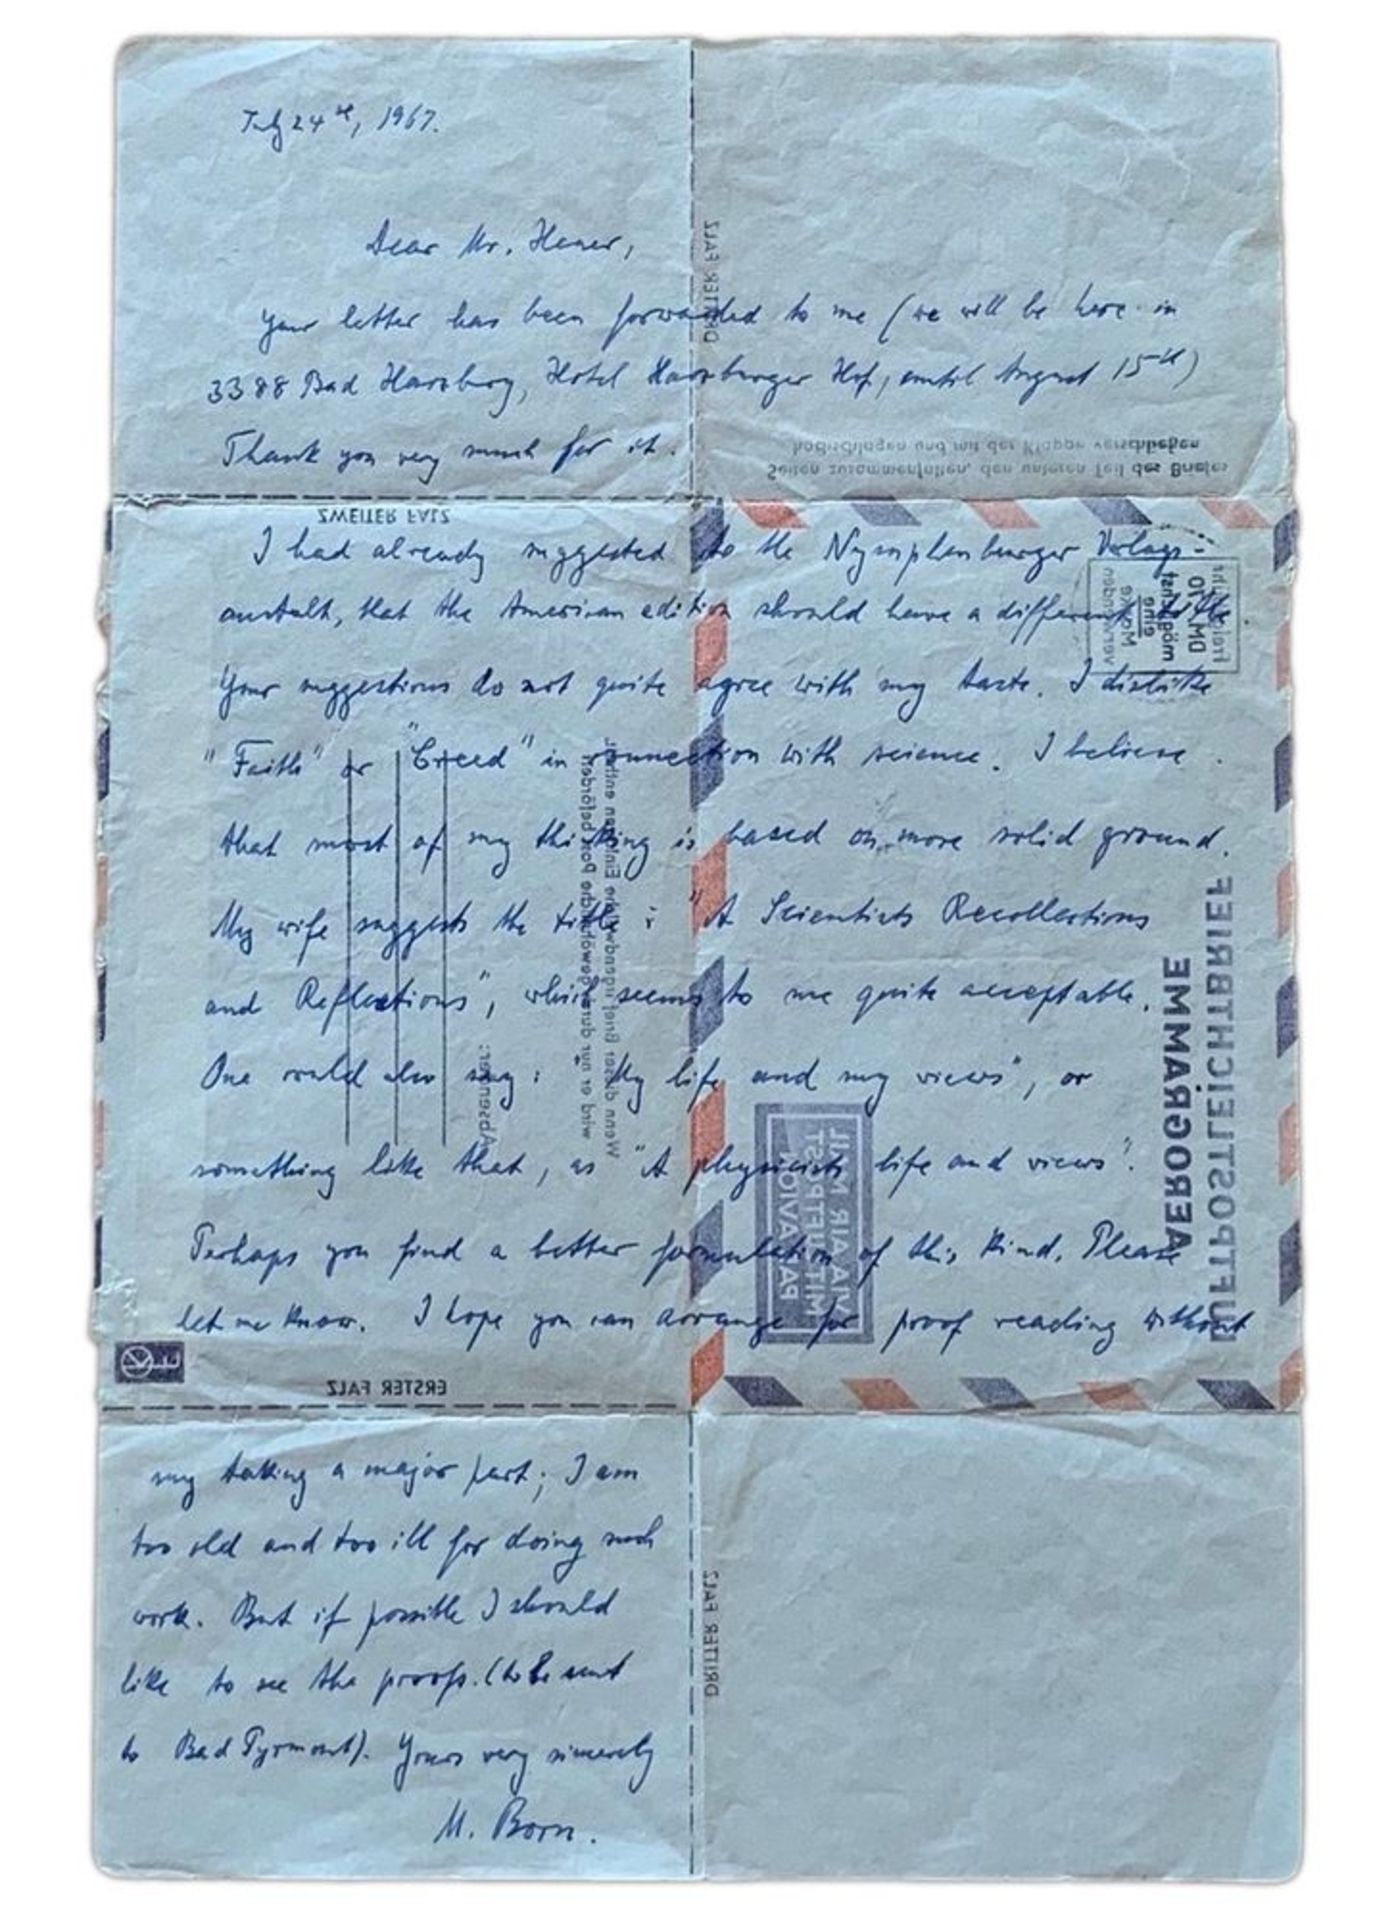 July 24th, 1967.
Dear Mr. Hener,
Your letter has been forwarded to me (we will be here in
3388 Bad Harzburg, Hotel Harzburger Hof, until August 15th)
Thank you very much for it.
I had already suggested to the Nymphenburger Verlags-
anstalt, that the American edition should have a different title
Your suggestions do not quite agree with my taste. I dislike
"Faith" or "Creed" in connection with science. I believe
that most of my thinking is based on more solid ground.
My wife suggests the title: "A Scientists Recollections
and Reflections", which seems to me quite acceptable.
One could also say: "My life and my views", or
something like that, as "A physicists life and views".
Perhaps you find a better formulation of this kind. Please
let me know. I hope you can arrange for proof reading without
my taking a major part; I am
too old and too ill for doing such
work. But if possible I should
like to see the proofs. (to be sent
to Bad Pyrmont). Yours very sincerely
M. Born.
DRITTER FALZ
Seiten zusammenfalten, den unteren Teil des Briefes
hochschlagen und mit der Klappe verschließen
ZWEITER FALZ
DM -,70
eine
Marke
verwenden
Wenn dieser Brief irgendwelche Einlagen enthält,
wird er nur durch gewöhnliche Post befördert
Absender:
LUFTPOSTLEICHTBRIEF
AEROGRAMME
MIT LUFTPOST
VIA AIR MAIL
PAR AVION
ERSTER FALZ
DRITTER FALZ